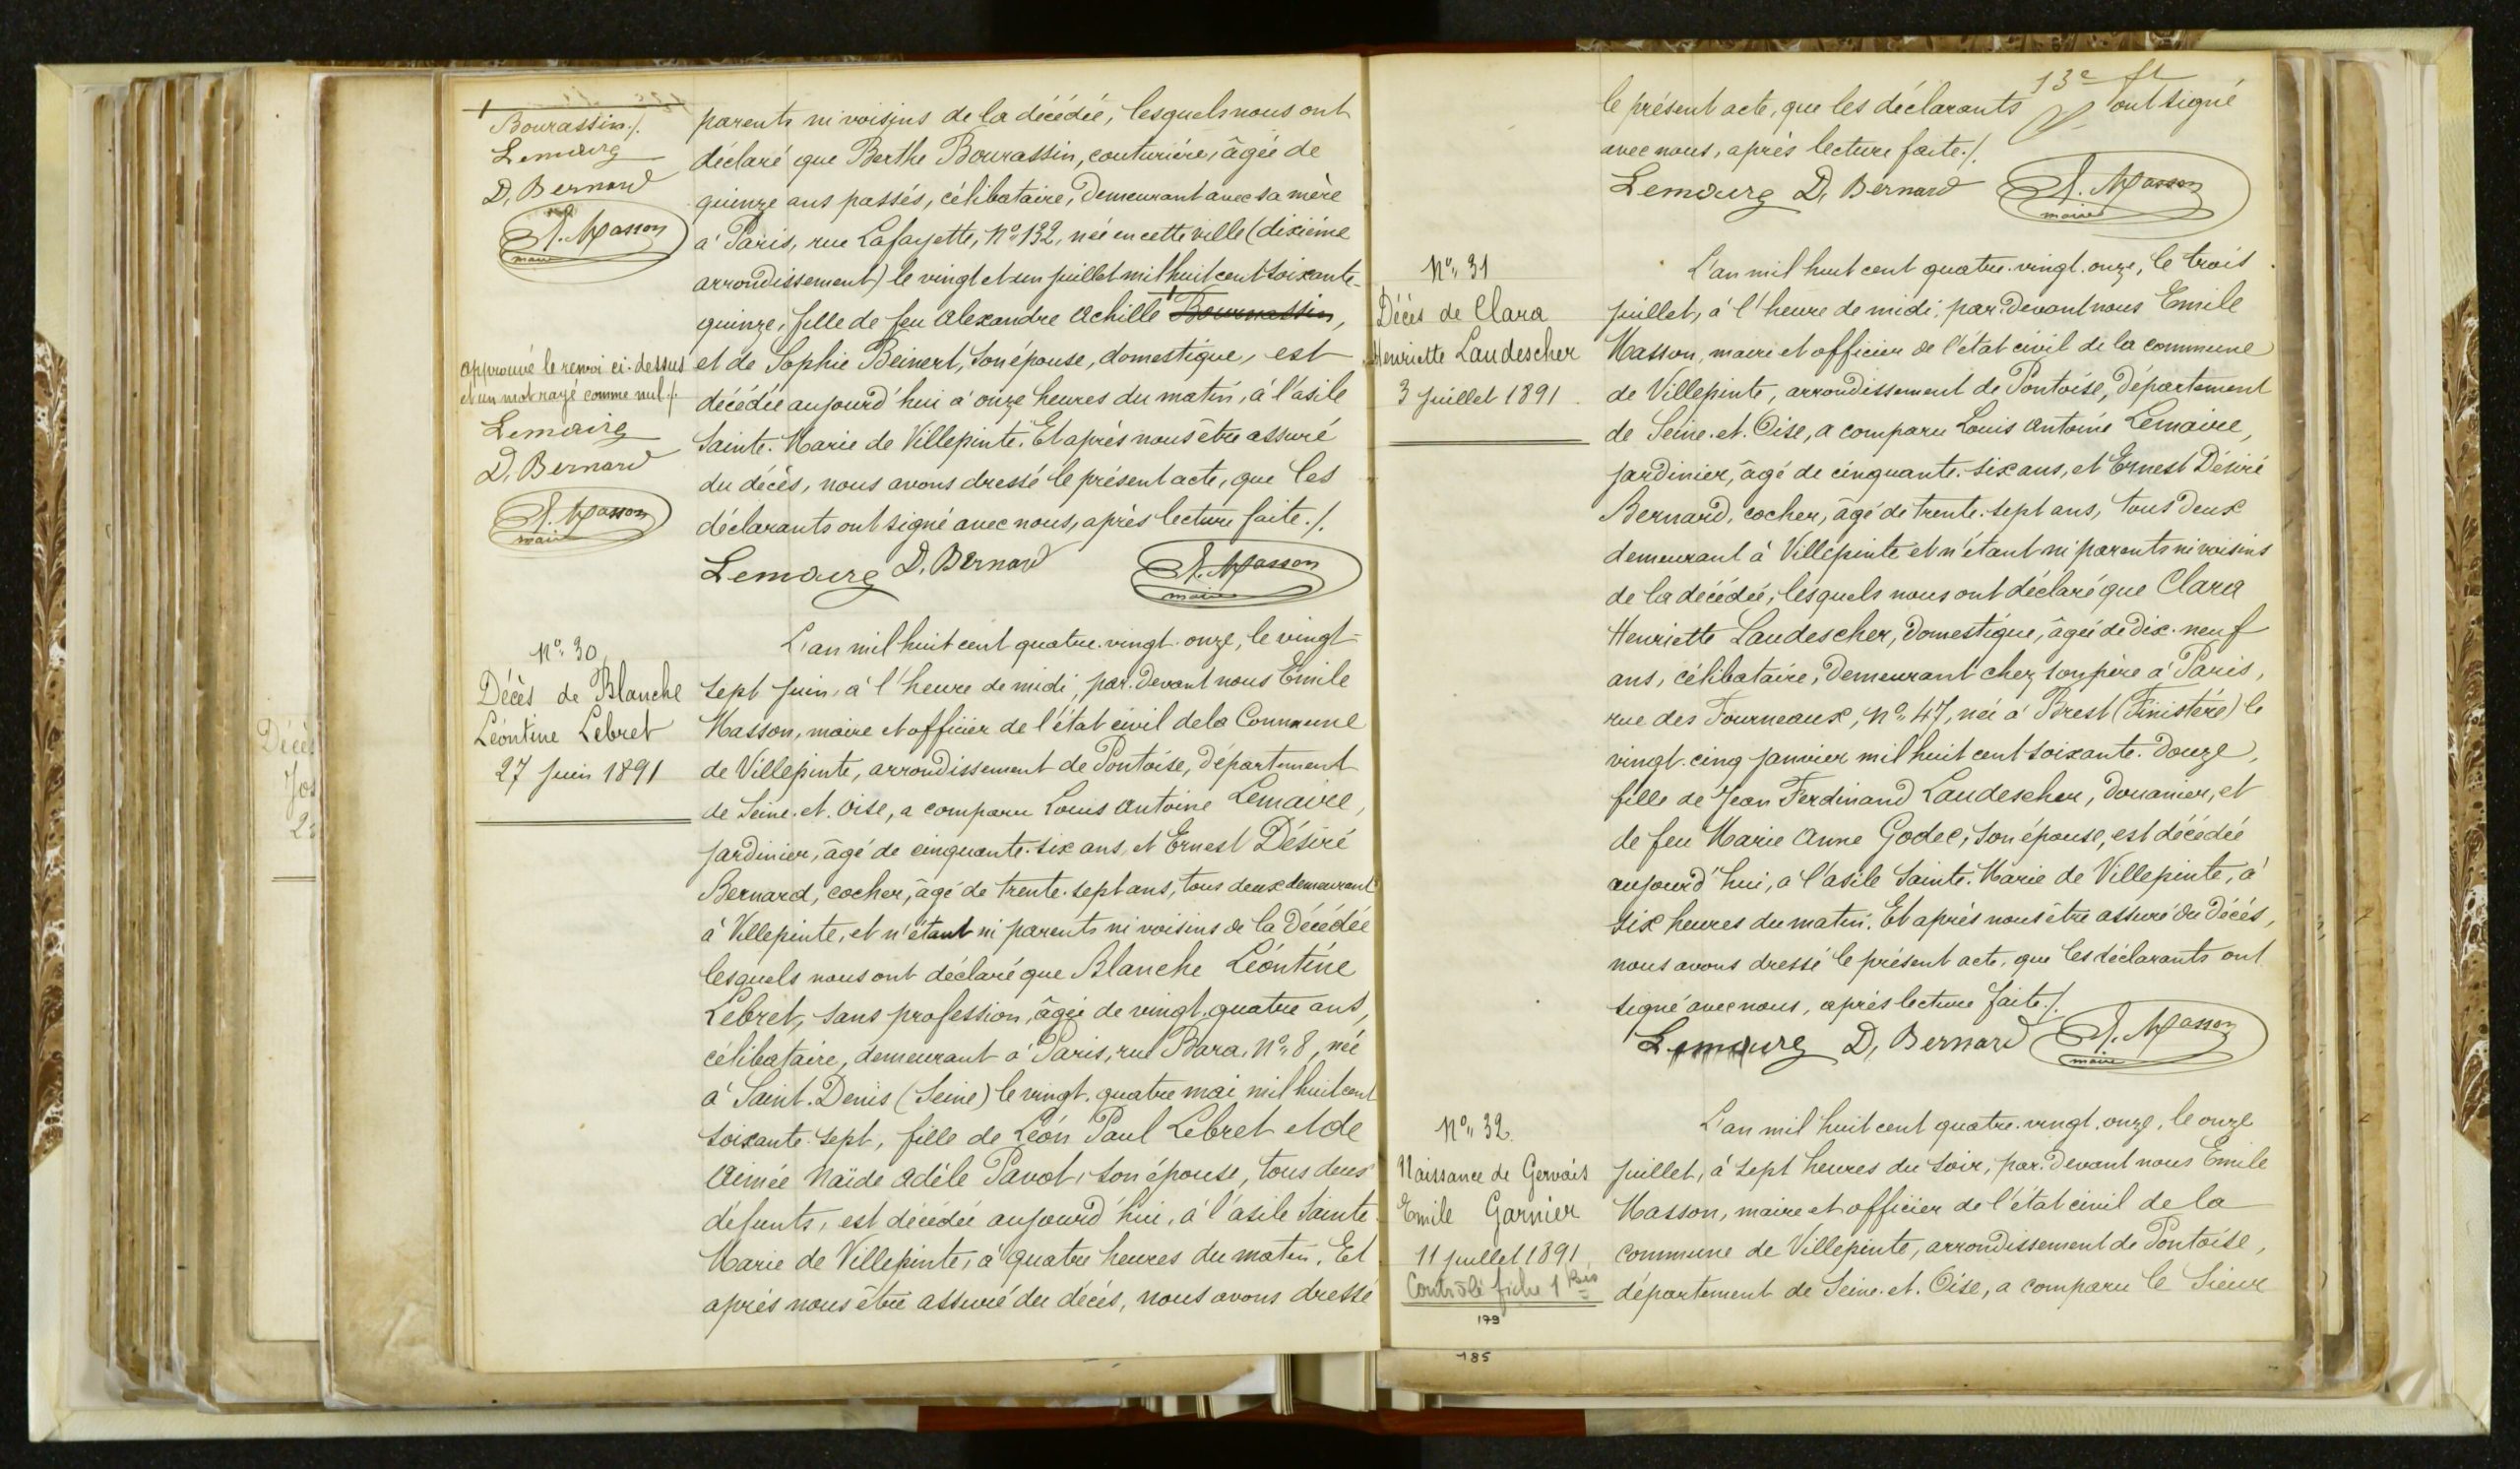 Bourassin ./.
Lemaire
D. Bernard
E. Masson
maire
approuvé le renvoi ci-dessus
et un mot rayé comme nul ./.
Lemaire
D. Bernard
E. Masson
maire
parents ni voisins de la décédée, lesquels nous ont
déclaré que Berthe Bourassin, couturière, âgée de
quinze ans passés, célibataire, demeurant avec sa mère
à Paris, rue Lafayette, No 132, née en cette ville (dixième
arrondissement) le vingt et un juillet mil huit cent soixante-
quinze, fille de feu Alexandre Achille Bournassin,
et de Sophie Beinert, son épouse, domestique, est
décédée aujourd'hui à onze heures du matin, à l'asile
Sainte-Marie de Villepinte. Et après nous être assuré
du décès, nous avons dressé le présent acte, que les
déclarants ont signé avec nous, après lecture faite ./.
Lemaire D. Bernard E. Masson
maire
No 30
Décès de Blanche
Léontine Lebret
27 Juin 1891
L'an mil huit cent quatre-vingt-onze, le vingt-
sept juin, à l'heure de midi, par-devant nous Emile
Masson, maire et officier de l'état civil de la Commune
de Villepinte, arrondissement de Pontoise, département
de Seine-et-Oise, a comparu Louis Antoine Lemaire,
jardinier, âgé de cinquante-six ans, et Ernest Désiré
Bernard, cocher, âgé de trente-sept ans, tous deux demeurant
à Villepinte, et n'étant ni parents ni voisins de la décédée
lesquels nous ont déclaré que Blanche Léontine
Lebret, sans profession, âgée de vingt-quatre ans,
célibataire, demeurant à Paris, rue Bara, No 8, née
à Saint-Denis (Seine) le vingt-quatre mai mil huit cent
soixante-sept, fille de Léon Paul Lebret et de
Aimée Naïde Adèle Pavot, son épouse, tous deux
défunts, est décédée aujourd'hui, à l'asile Sainte-
Marie de Villepinte, à quatre heures du matin. Et
après nous être assuré du décès, nous avons dressé
13e ft
le présent acte, que les déclarants ont signé
avec nous, après lecture faite ./.
Lemaire D. Bernard E. Masson
maire
No 31
Décès de Clara
Henriette Laudescher
3 Juillet 1891
L'an mil huit cent quatre-vingt-onze, le trois
juillet, à l'heure de midi, par-devant nous Emile
Masson, maire et officier de l'état civil de la commune
de Villepinte, arrondissement de Pontoise, département
de Seine-et-Oise, a comparu Louis Antoine Lemaire,
jardinier, âgé de cinquante-six ans, et Ernest Désiré
Bernard, cocher, âgé de trente-sept ans, tous deux
demeurant à Villepinte et n'étant ni parents ni voisins
de la décédée, lesquels nous ont déclaré que Clara
Henriette Laudescher, domestique, âgée de dix-neuf
ans, célibataire, demeurant chez son père à Paris,
rue des Fourneaux, No 47, née à Brest (Finistère) le
vingt-cinq janvier mil huit cent soixante-douze,
fille de Jean Ferdinand Laudescher, douanier, et
de feu Marie Anne Godec, son épouse, est décédée
aujourd'hui, à l'asile Sainte-Marie de Villepinte, à
six heures du matin. Et après nous être assuré du décès,
nous avons dressé le présent acte, que les déclarants ont
signé avec nous, après lecture faite ./.
Lemaire D. Bernard E. Masson
maire
No 32
Naissance de Gervais
Emile Garnier
11 juillet 1891
Contrôlé fiche 1 Bis
L'an mil huit cent quatre-vingt-onze, le onze
juillet, à sept heures du soir, par-devant nous Emile
Masson, maire et officier de l'état civil de la
commune de Villepinte, arrondissement de Pontoise,
département de Seine-et-Oise, a comparu le Sieur
179
185